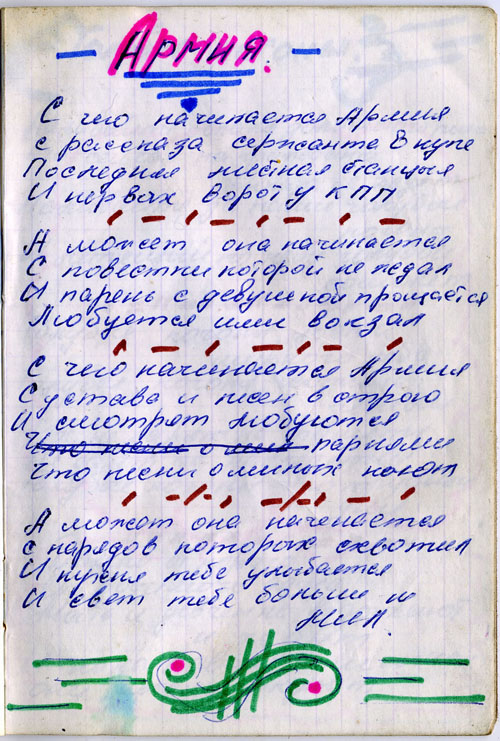 Армия.
С чего начинается Армия
с рассказа сержанта в купе
Последняя местная станция
И первых ворот у КПП
А может она начинается
С повестки которой не ждал
И парень с девушкой прощается
Любуется ими вокзал
С чего начинается Армия
С устава и песен в строю
И смотрят любуются
парнями
Что песни о милых поют
А может она начинается
с нарядов которых схватил
И кухня тебе улыбается
И свет тебе больше н
мил.